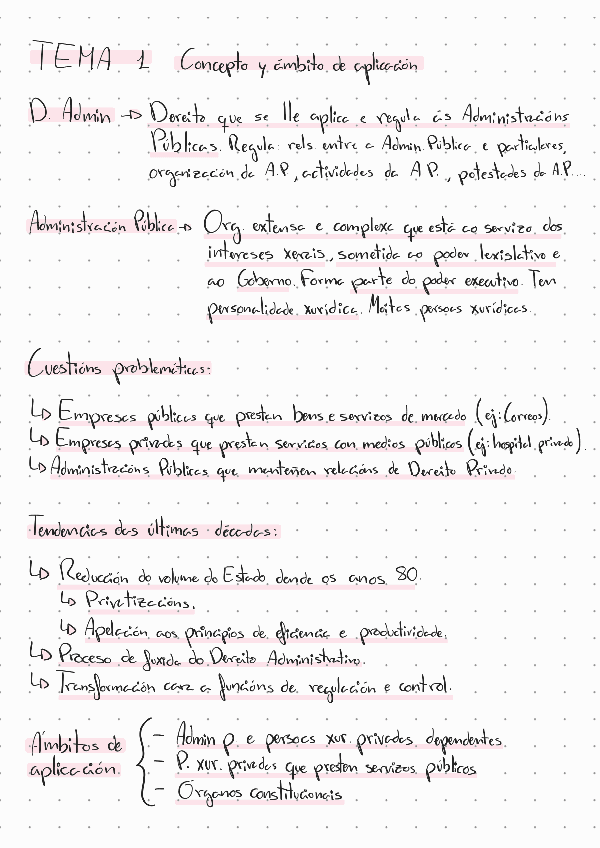 TEMA 1 Concepto y ámbito de aplicación
D. Admin → Dereito que se lle aplica e regula ás Administracións
Públicas. Regula: rels. entre a Admin. Pública e particulares,
organización da A.P., actividades da A.P., potestades da A.P....
Administración Pública → Org. extensa e complexa que está ao servizo dos
intereses xerais, sometida ao poder lexislativo e
ao Goberno. Forma parte do poder executivo. Ten
personalidade xurídica. Moitas persoas xurídicas.
Cuestións problemáticas:
↳ Empresas públicas que prestan bens e servizos de mercado (ej: Correos).
↳ Empresas privadas que prestan servicios con medios públicos (ej: hospital privado).
↳ Administracións Públicas que manteñen relacións de Dereito Privado.
Tendencias das últimas décadas:
↳ Reducción do volume do Estado dende os anos 80.
↳ Privatizacións.
↳ Apelación aos principios de eficiencia e productividade.
↳ Proceso de fuxida do Dereito Administrativo.
↳ Transformación cara a funcións de regulación e control.
Ámbitos de aplicación.
- Admin p. e persoas xur. privadas dependentes.
- P. xur. privadas que presten servizos públicos
- Órganos constitucionais